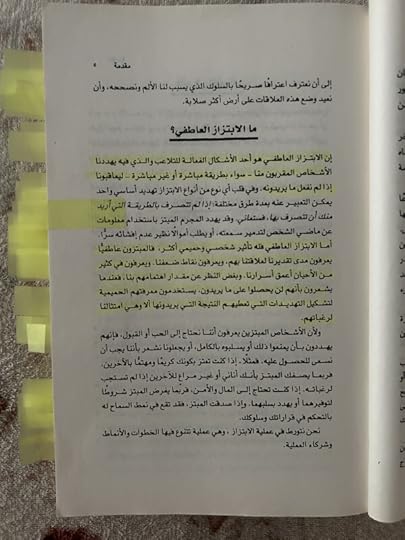 مقدمة ٥
إلى أن نعترف اعترافًا صريحًا بالسلوك الذي يسبب لنا الألم ونصححه، وأن
نعيد وضع هذه العلاقات على أرض أكثر صلابة.
ما الابتزاز العاطفي؟
إن الابتزاز العاطفي هو أحد الأشكال الفعالة للتلاعب والذي فيه يهددنا
الأشخاص المقربون منا – سواء بطريقة مباشرة أو غير مباشرة – ليعاقبونا
إذا لم نفعل ما يريدونه. وفي قلب أي نوع من أنواع الابتزاز تهديد أساسي واحد
يمكن التعبير عنه بعدة طرق مختلفة: إذا لم تتصرف بالطريقة التي أريد
منك أن تتصرف بها، فستعاني. وقد يهدد المجرم المبتز باستخدام معلومات
عن ماضي الشخص لتدمير سمعته، أو يطلب أموالًا نظير عدم إفشائه سرًّا.
أما الابتزاز العاطفي فله تأثير شخصي وحميمي أكثر، فالمبتزون عاطفيًّا
يعرفون مدى تقديرنا لعلاقتنا بهم، ويعرفون نقاط ضعفنا. ويعرفون في كثير
من الأحيان أعمق أسرارنا. وبغض النظر عن مقدار اهتمامهم بنا، فعندما
يشعرون بأنهم لن يحصلوا على ما يريدون، يستخدمون معرفتهم الحميمية
لتشكيل التهديدات التي تعطيهم النتيجة التي يريدونها ألا وهي امتثالنا
لرغباتهم.
ولأن الأشخاص المبتزين يعرفون أننا نحتاج إلى الحب أو القبول، فإنهم
يهددون بأن يمنعوا ذلك أو يسلبوه بالكامل، أو يجعلونا نشعر بأننا يجب أن
نسعى للحصول عليه. فمثلًا، إذا كنت تعتز بكونك كريمًا ومهتمًّا بالآخرين،
فربما يصفك المبتز بأنك أناني أو غير مراعٍ للآخرين إذا لم تستجب
لرغباته. إذا كنت تحتاج إلى المال والأمن، فربما يفرض المبتز شروطًا
لتوفيرهما أو يهدد بسلبهما. وإذا صدقت المبتز، فقد تقع في نمط السماح له
بالتحكم في قراراتك وسلوكك.
نحن نتورط في عملية الابتزاز، وهي عملية تتنوع فيها الخطوات والأنماط
وشركاء العملية.